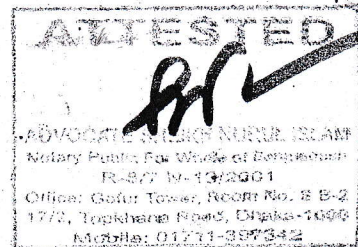 ATTESTED
ADVOCATE NURUL ISLAM
Notary Public For Whole of Bangladesh
Office: Gofur Tower, Room No. 8 B-2
17/2, Topkhana Road, Dhaka-1000
Mobile: 01711-397342